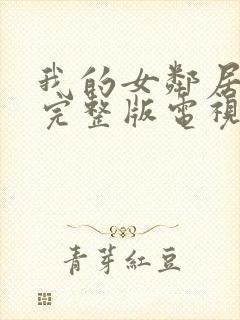 我的女鄰居
完整版電視
青芽紅豆